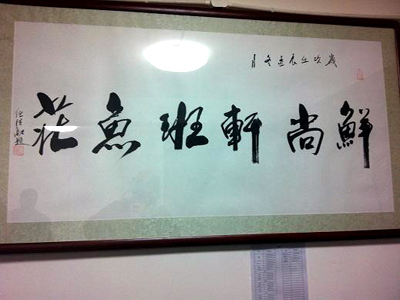 鮮尚軒班魚莊
歲次壬辰孟冬月